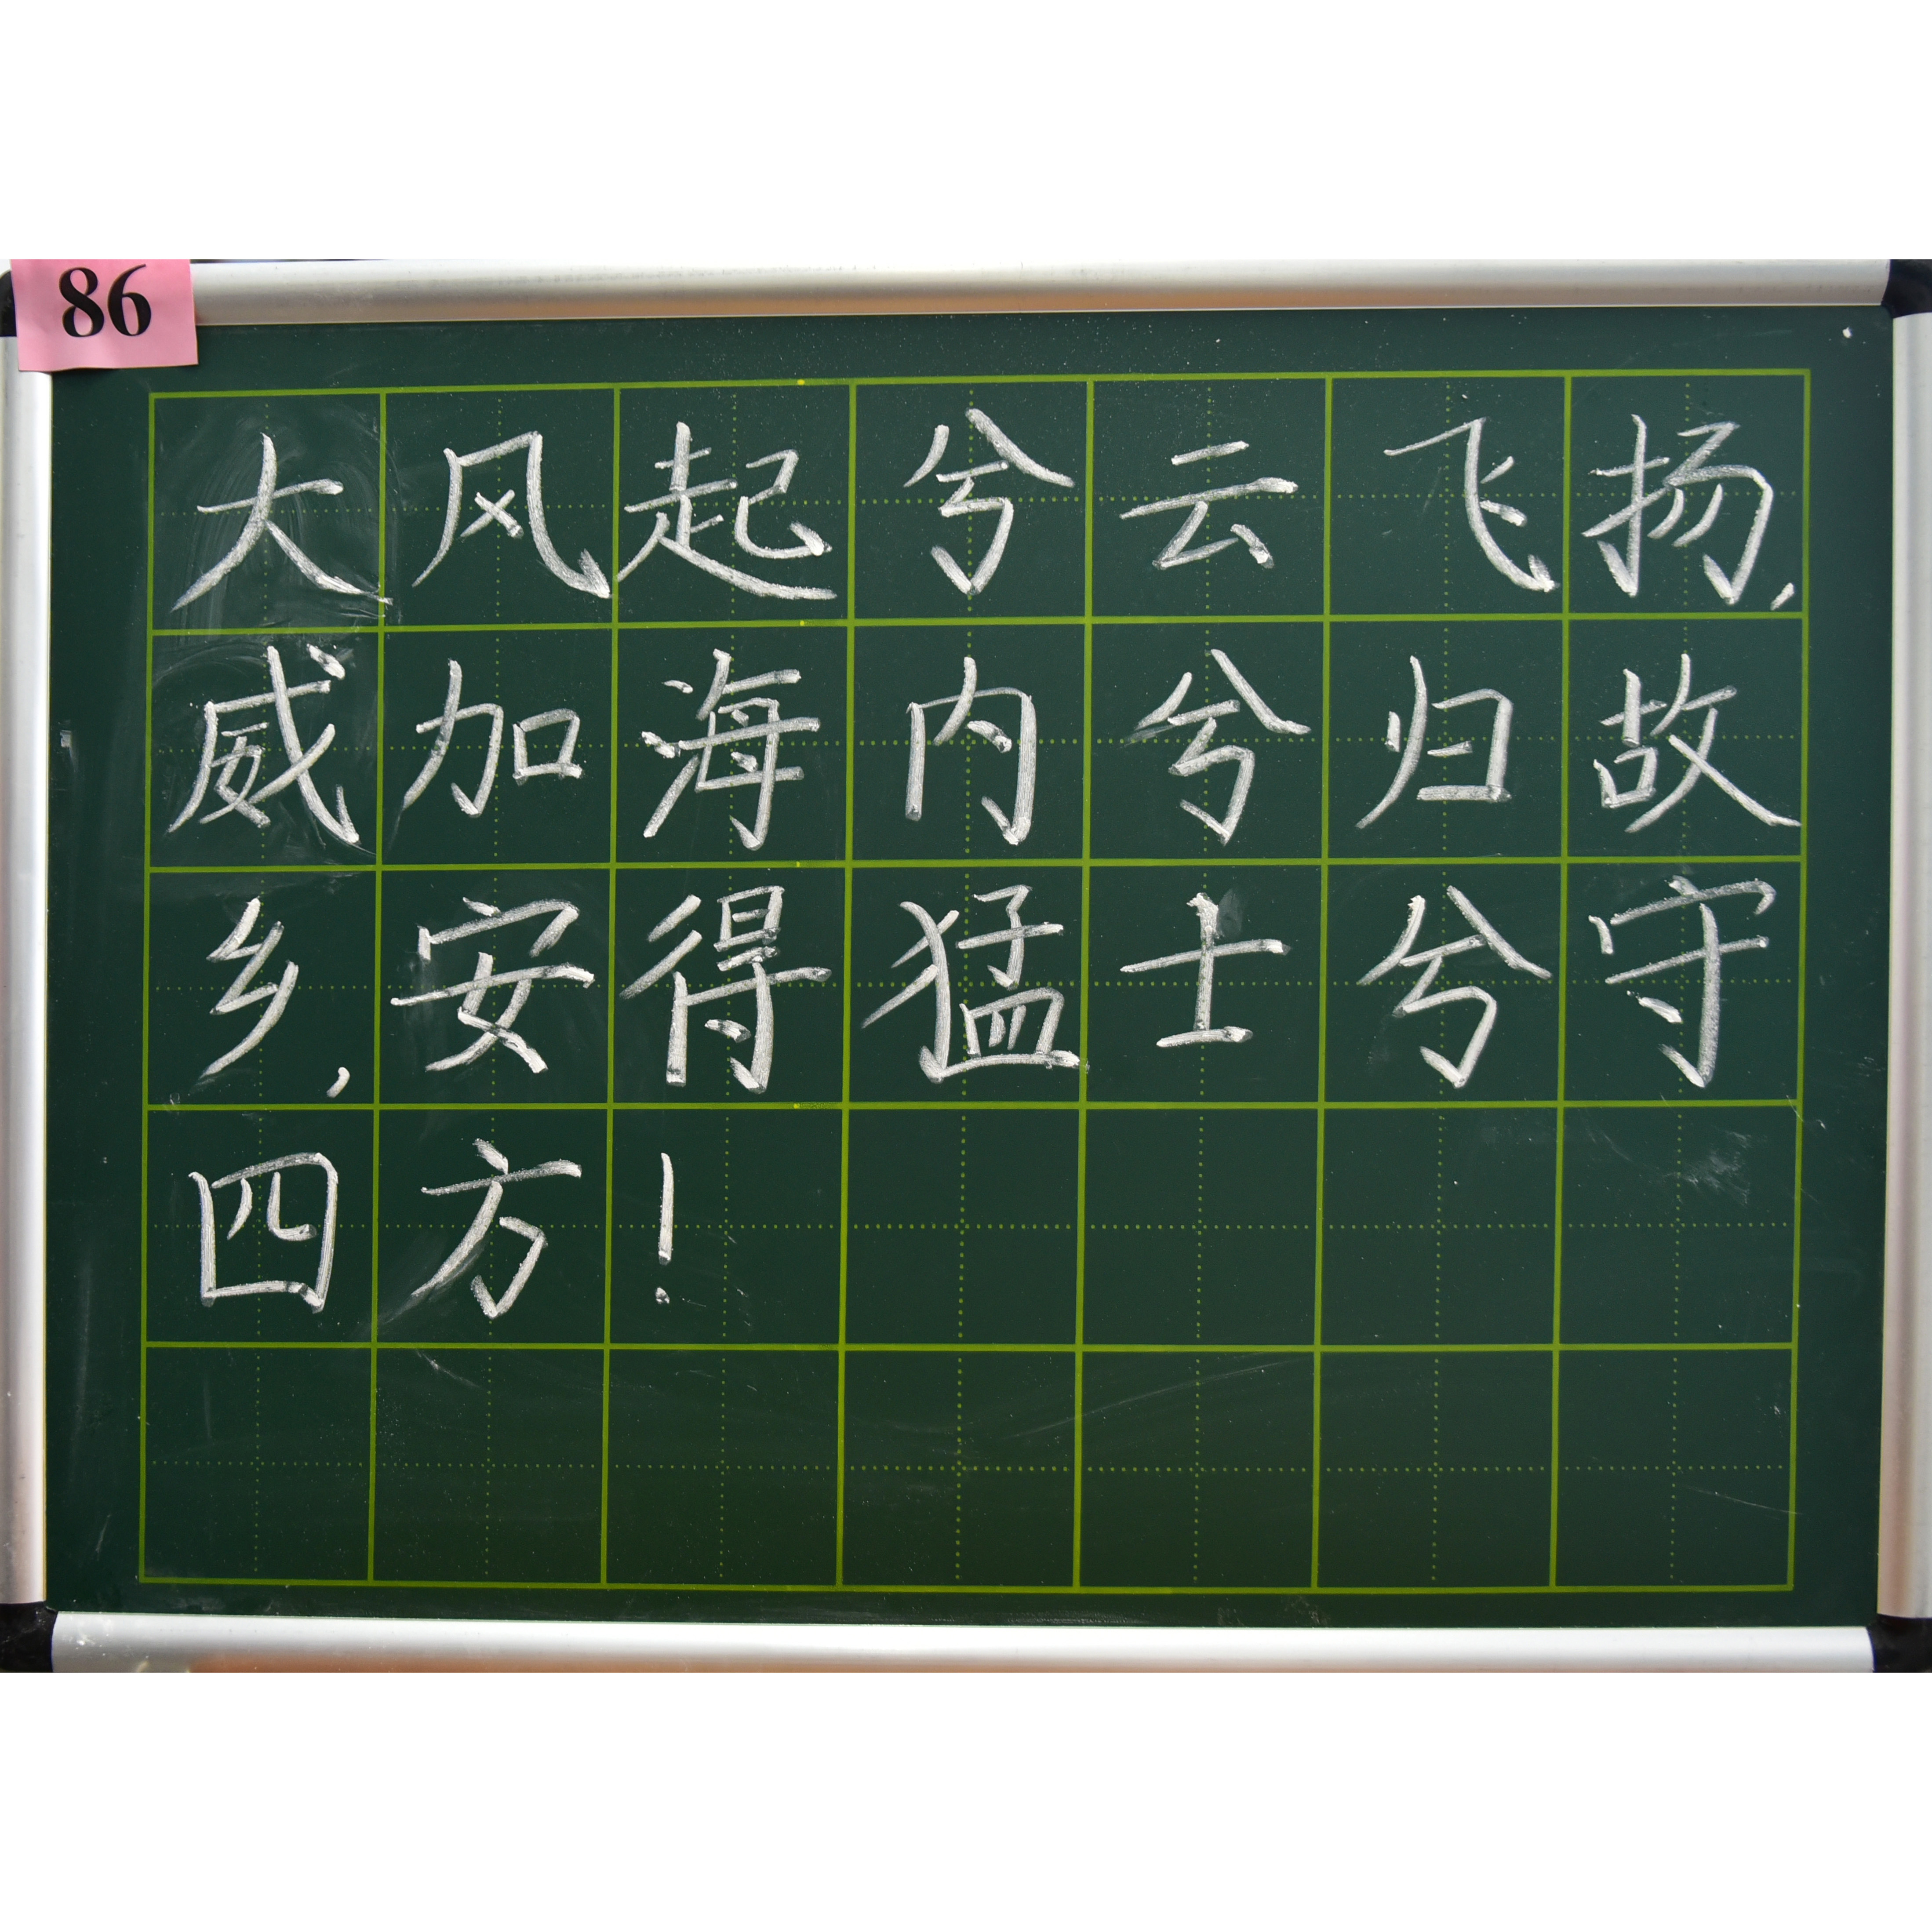 86
大风起兮云飞扬,
威加海内兮归故
乡,安得猛士兮守
四方!